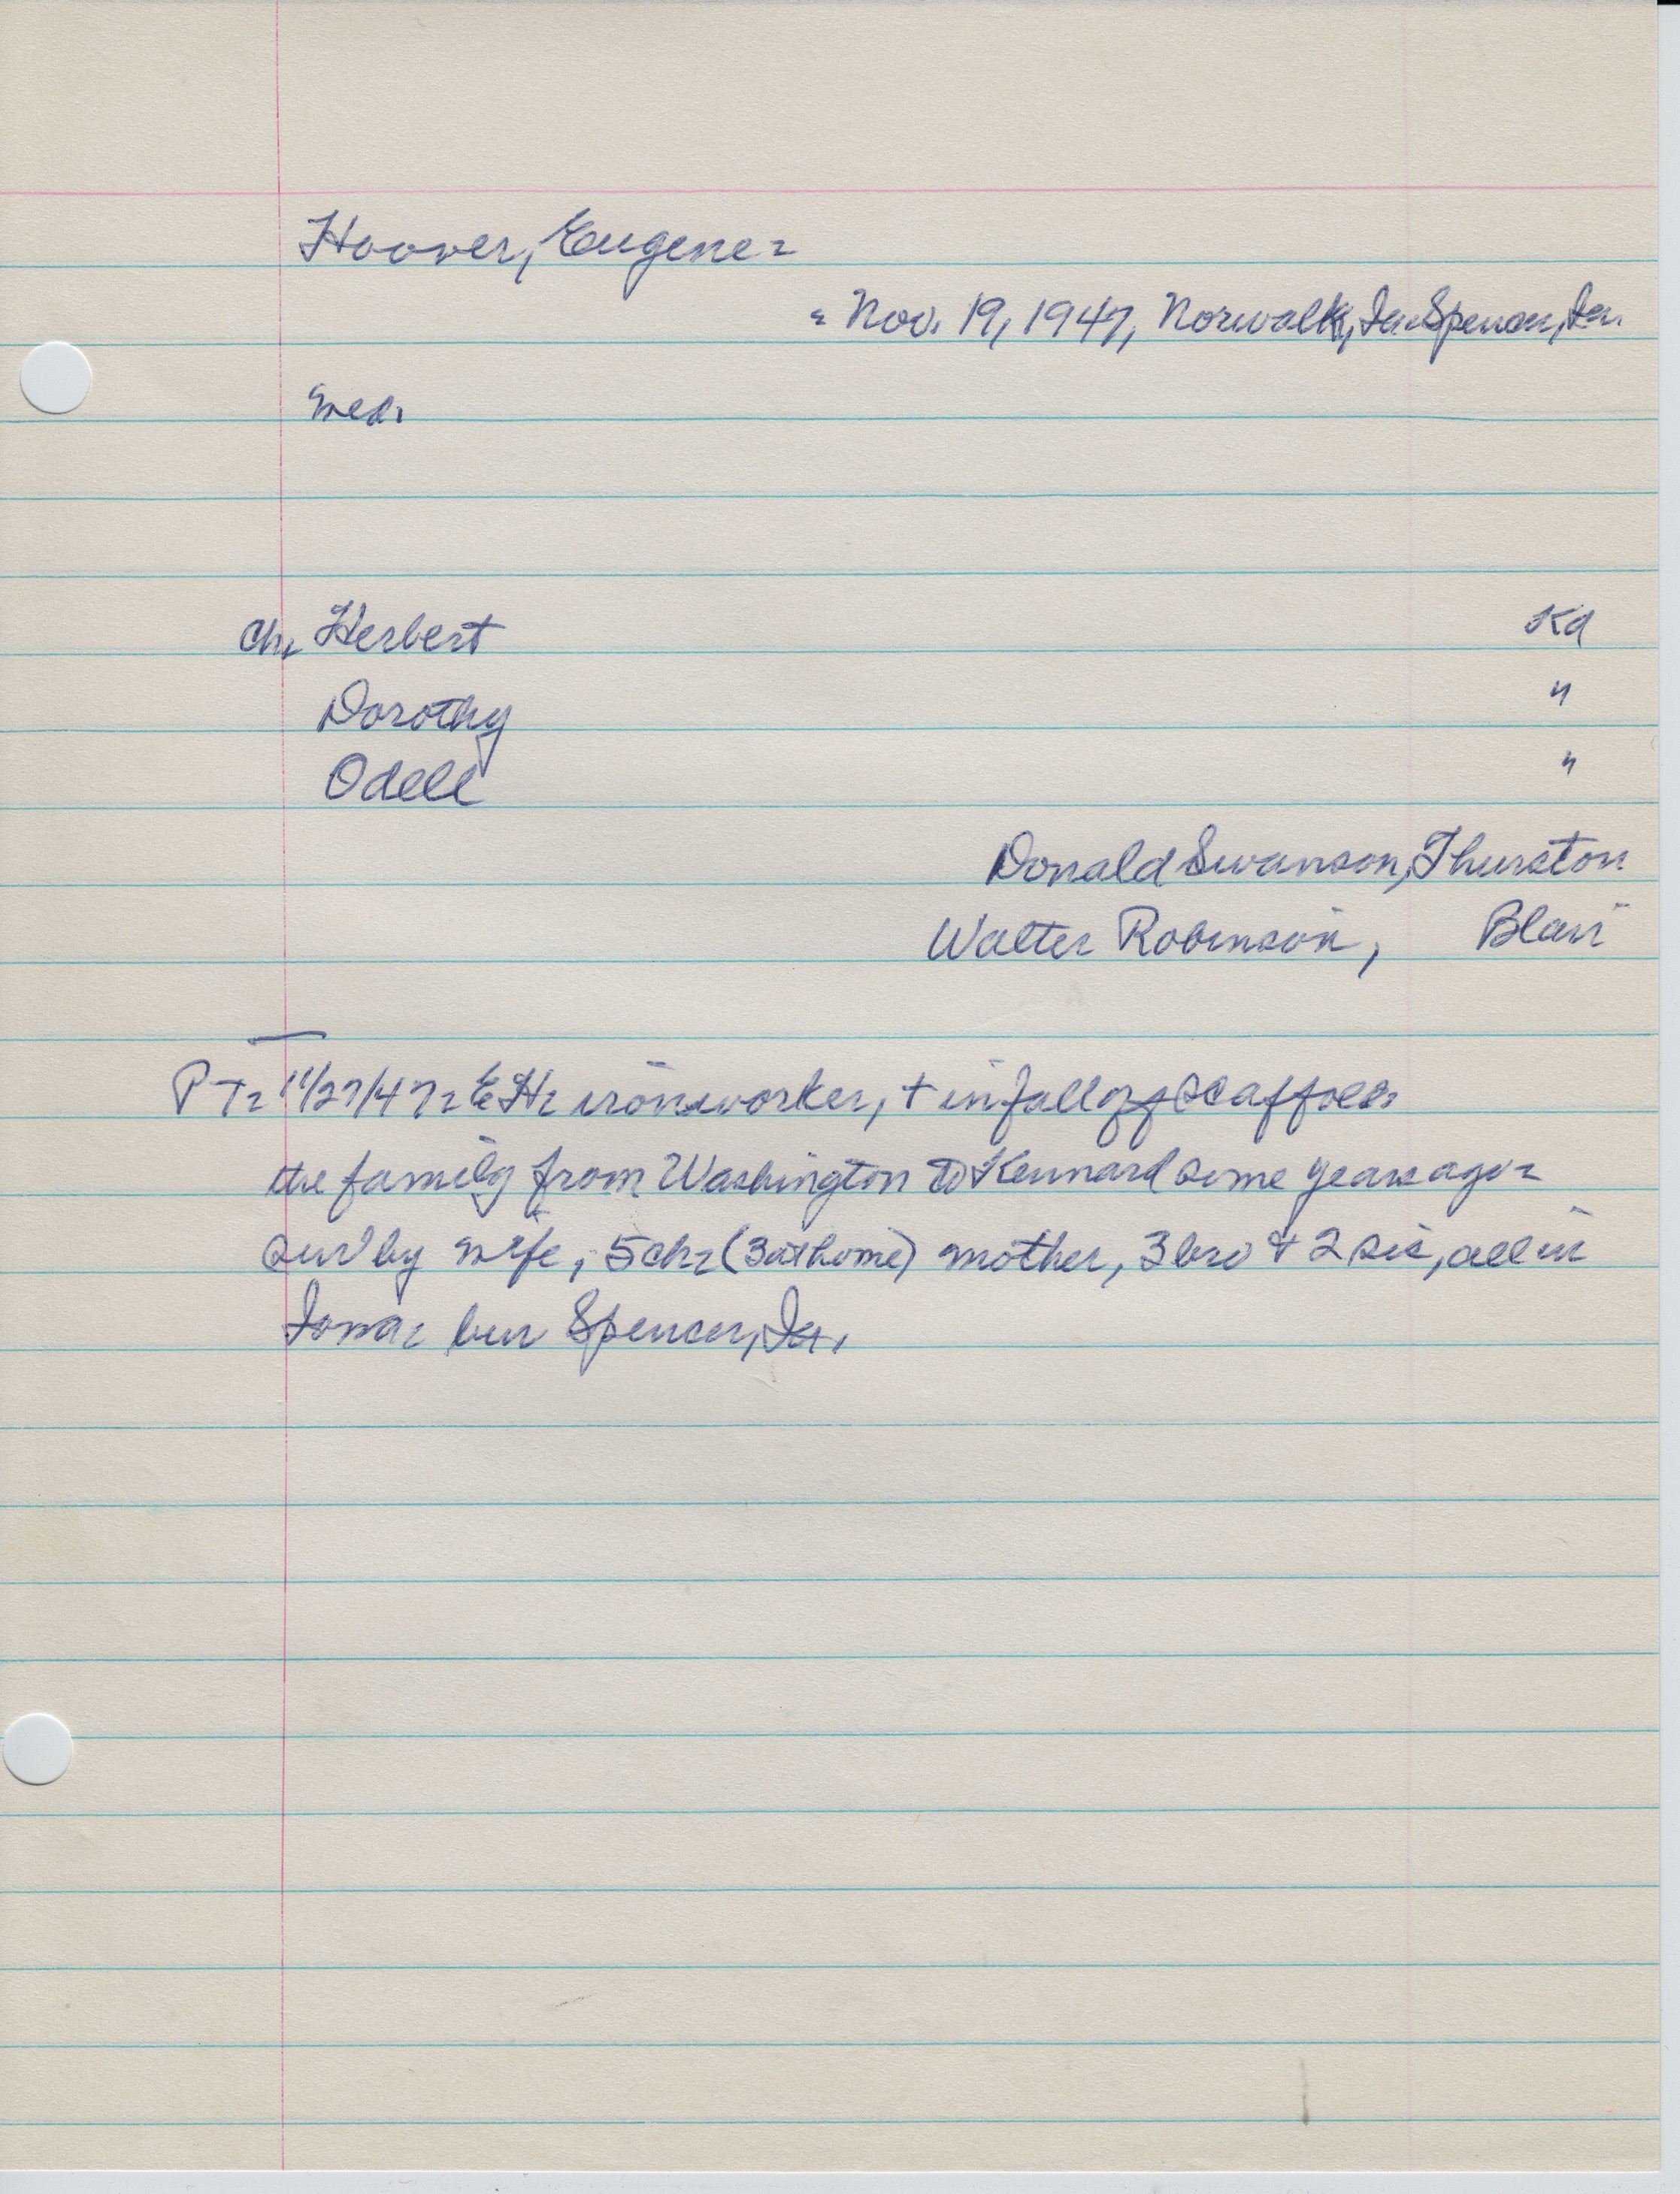 Hoover, Eugene-
- Nov. 19, 1947, Norwalk, Ia.-Spencer, Ia.
med.
Ch. Herbert Kd
Dorothy "
Odell "
Donald Swanson, Thurston
Walter Robinson, Blair
PT- 11/27/47- EH- ironworker, + in fall off scaffold.
the family from Washington to Kennard some years ago-
surv by wife, 5 ch- (3 at home) mother, 3 bro & 2 sis, all in
Iowa- bur Spencer, Ia.